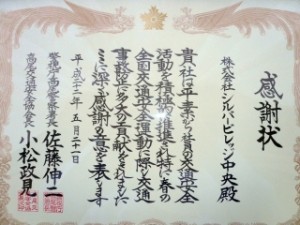 感謝状
株式会社シルバービレッジ中央殿
貴社は平素から交通安全
活動を積極的に推進され特に春の
全国交通安全運動に際し交通
事故防止に多大の貢献をされました
ここに深く感謝の意を表します
平成二十二年五月二十一日
警視庁高尾警察署長 佐藤伸二
高尾交通安全協会長 小松政見